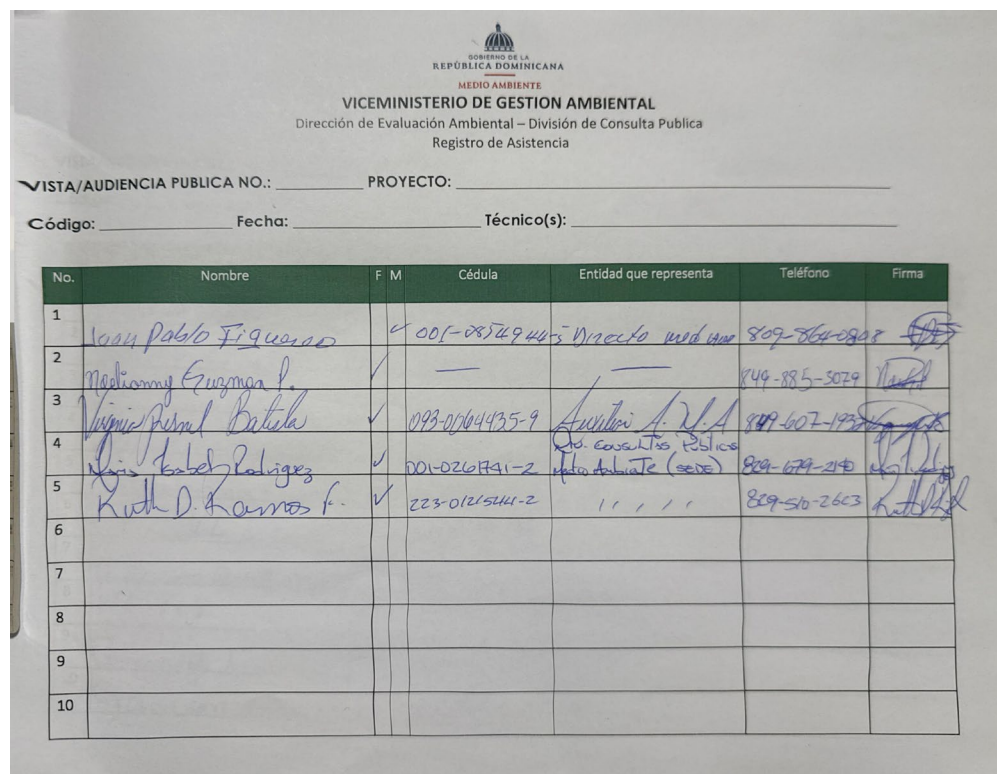 GOBIERNO DE LA
REPÚBLICA DOMINICANA
MEDIO AMBIENTE
VICEMINISTERIO DE GESTION AMBIENTAL
Dirección de Evaluación Ambiental – División de Consulta Publica
Registro de Asistencia
VISTA/AUDIENCIA PUBLICA NO.: PROYECTO:
Código: Fecha: Técnico(s):
No. Nombre F M Cédula Entidad que representa Teléfono Firma
1 Juan Pablo Figuereo ✓ 001-0854944-5 Directo 809-864-0808
2 Noelianny Guzman P. ✓ — — 849-885-3079
3 Batista ✓ 093-0064435-9 Auxiliar A. M. A
Dto. Consultas Públicas
4 Isabel Rodriguez ✓ 001-0261741-2 Medio Ambiate (SEDE) 829-679-2190
5 Ruth D. Ramos F. ✓ 223-0121544-2 , , , , , 829-510-2603
6
7
8
9
10